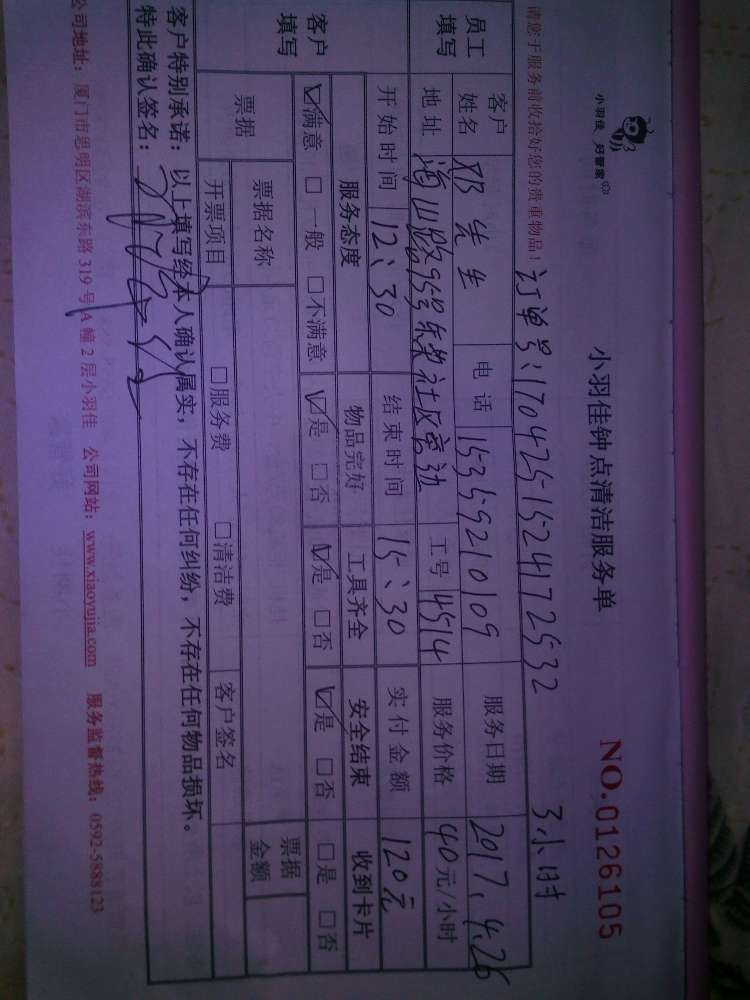 小羽佳 好管家
小羽佳钟点清洁服务单
NO.0126105
请您于服务前收拾好您的贵重物品!
订单号:1704251524172532
3小时
员工填写
客户姓名 邓先生 电话 15359210109 服务日期 2017.4.26
地址 湾山路95号东荣社区旁边 工号 4514 服务价格 40元/小时
开始时间 12:30 结束时间 15:30 实付金额 120元
客户填写
服务态度 物品完好 工具齐全 安全结束 收到卡片
☑满意 □一般 □不满意 ☑是 □否 ☑是 □否 ☑是 □否 □是 □否
票据 票据名称 票据金额
开票项目 □服务费 □清洁费 客户签名
客户特别承诺:以上填写经本人确认属实,不存在任何纠纷,不存在任何物品损坏。
特此确认签名:
公司地址:厦门市思明区湖滨东路319号A幢2层小羽佳 公司网站:www.xiaoyujia.com 服务监督热线:0592-5888123